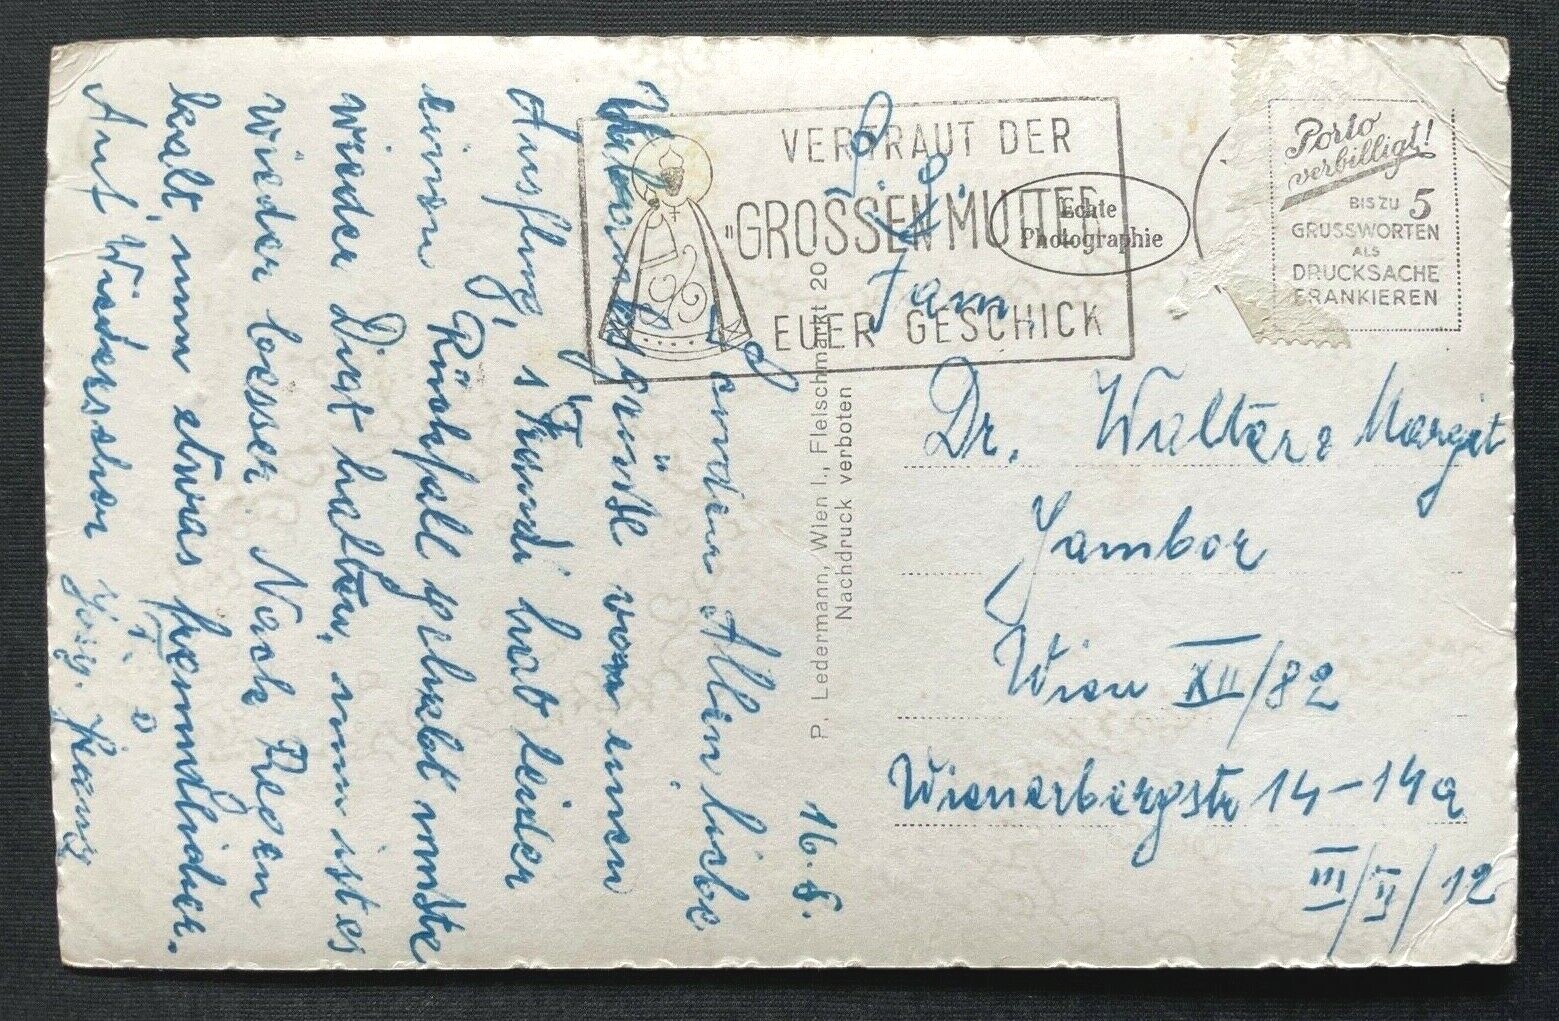 16.8.
Senden Allen liebe
Urlaubsgrüße von einen
Ausflug, 's Franzi hat leider
einen Rückfall gehabt musste
wieder Diät halten, nun ist es
wieder besser. Nach Regen
kalt, nun etwas freundlicher.
Auf Wiedersehen
VERTRAUT DER
"GROSSEN MUTTER
EUER GESCHICK
Echte
Photographie
Porto
verbilligt!
BIS ZU 5
GRUSSWORTEN
ALS
DRUCKSACHE
FRANKIEREN
P. Ledermann, Wien I., Fleischmarkt 20
Nachdruck verboten
Fam.
Dr. Walter u Margit
Jambor
Wien XII/82
Wienerbergstr 14-14a
III/II/12